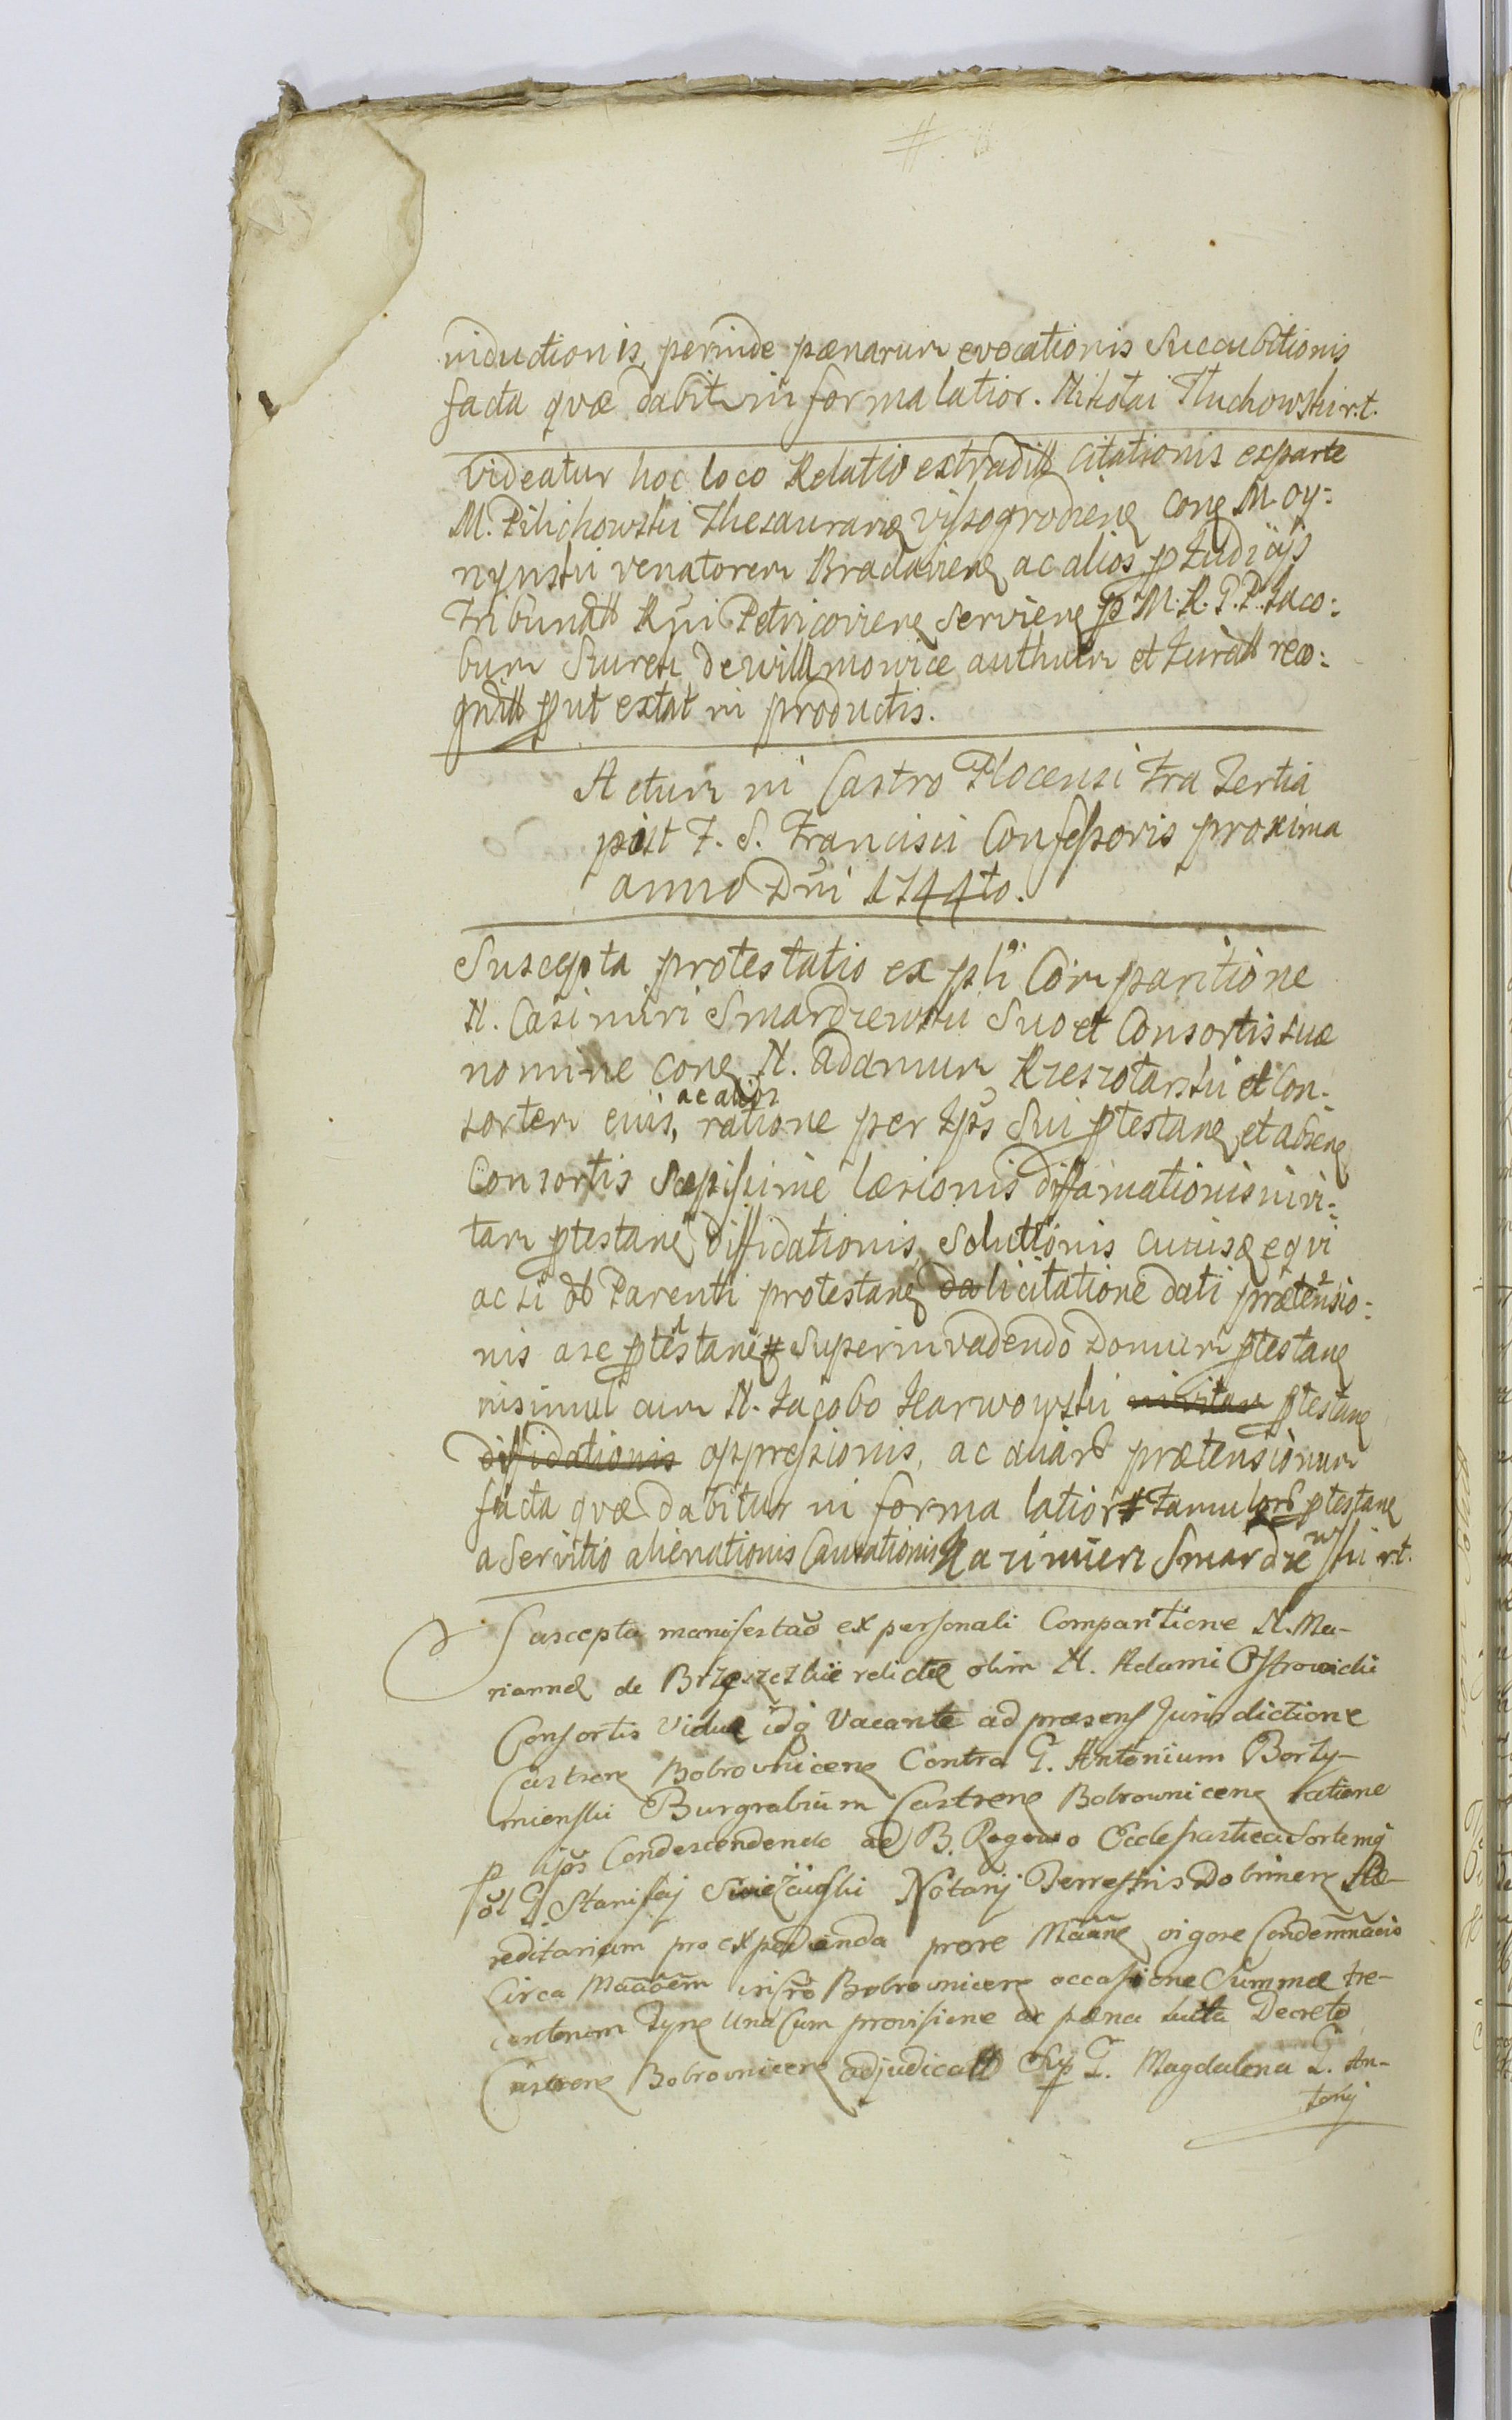 inductionis, perinde pœnarum evocationis Succubitionis
facta quæ dabit in forma latior. Mikołai Tłuchowski r.t.
Videatur hoc loco Relatio extradit Citationis ex parte
M. Pilichowski Thesaurarij Vissogrodien cong M. Oy=
nynski venatorem Braclavien ac alios p Judicijs
Tribunal Rgni Petricovien Servien p M. R. P. P. Jaco=
bum authum et Jurat reco=
gnit put extat in productis.
Actum in Castro Plocensi Fra Tertia
post F. S. Francisci Confessoris proxima
anno Dni 1744to.
Suscepta protestatio ex pli Comparitione
N. Casimiri Smardzewski Suo et Consortis suæ
nomine cong N. Adamum Rzeszotarski et Con-
sortem eius, ac alios ratione per Ips Sui ptestang et absen
Consortis Sæpissime læsionis diffamationis invi=
tam ptestang diffidationis Solutionis cuiusq equi
ac si ob Parenti protestang da licitatione dati prætensio=
nis a se ptestang # Super invadendo Domum ptestang
insimul cum N. Jacobo Karwowski invitam ptestang
diffidationis oppressionis, ac aliard prætensionum
facta quæ dabitur in forma latior # famulord ptestang
a Servitio alienationis Causationis Kazimierz Smardzewski r.t.
Suscepta manifestao ex personali Comparitione N. Ma-
riannæ de Brzeszczkie relictæ olim N. Adami Ostrowicki
Consortis Viduæ idq Vacante ad præsens Jurisdictione
Castren Bobrownicen Contra G. Antonium Borzy-
mienski Burgrabium Castren Bobrownicen ratione
p ipos Condescendendo ad B. Rogowo Ecclesiastica Sortemq
ol G Stanislaj Swiezawski Notarij Terrestris Dobrinen Hæ-
reditarium pro expedienda prore vigore Condemnacio
Circa occasione Summæ tre-
centorum una Cum provisione ac pœna lucta Decreto
Castren Bobrownicen adjudicatt G. Magdalena G. An-
tonij